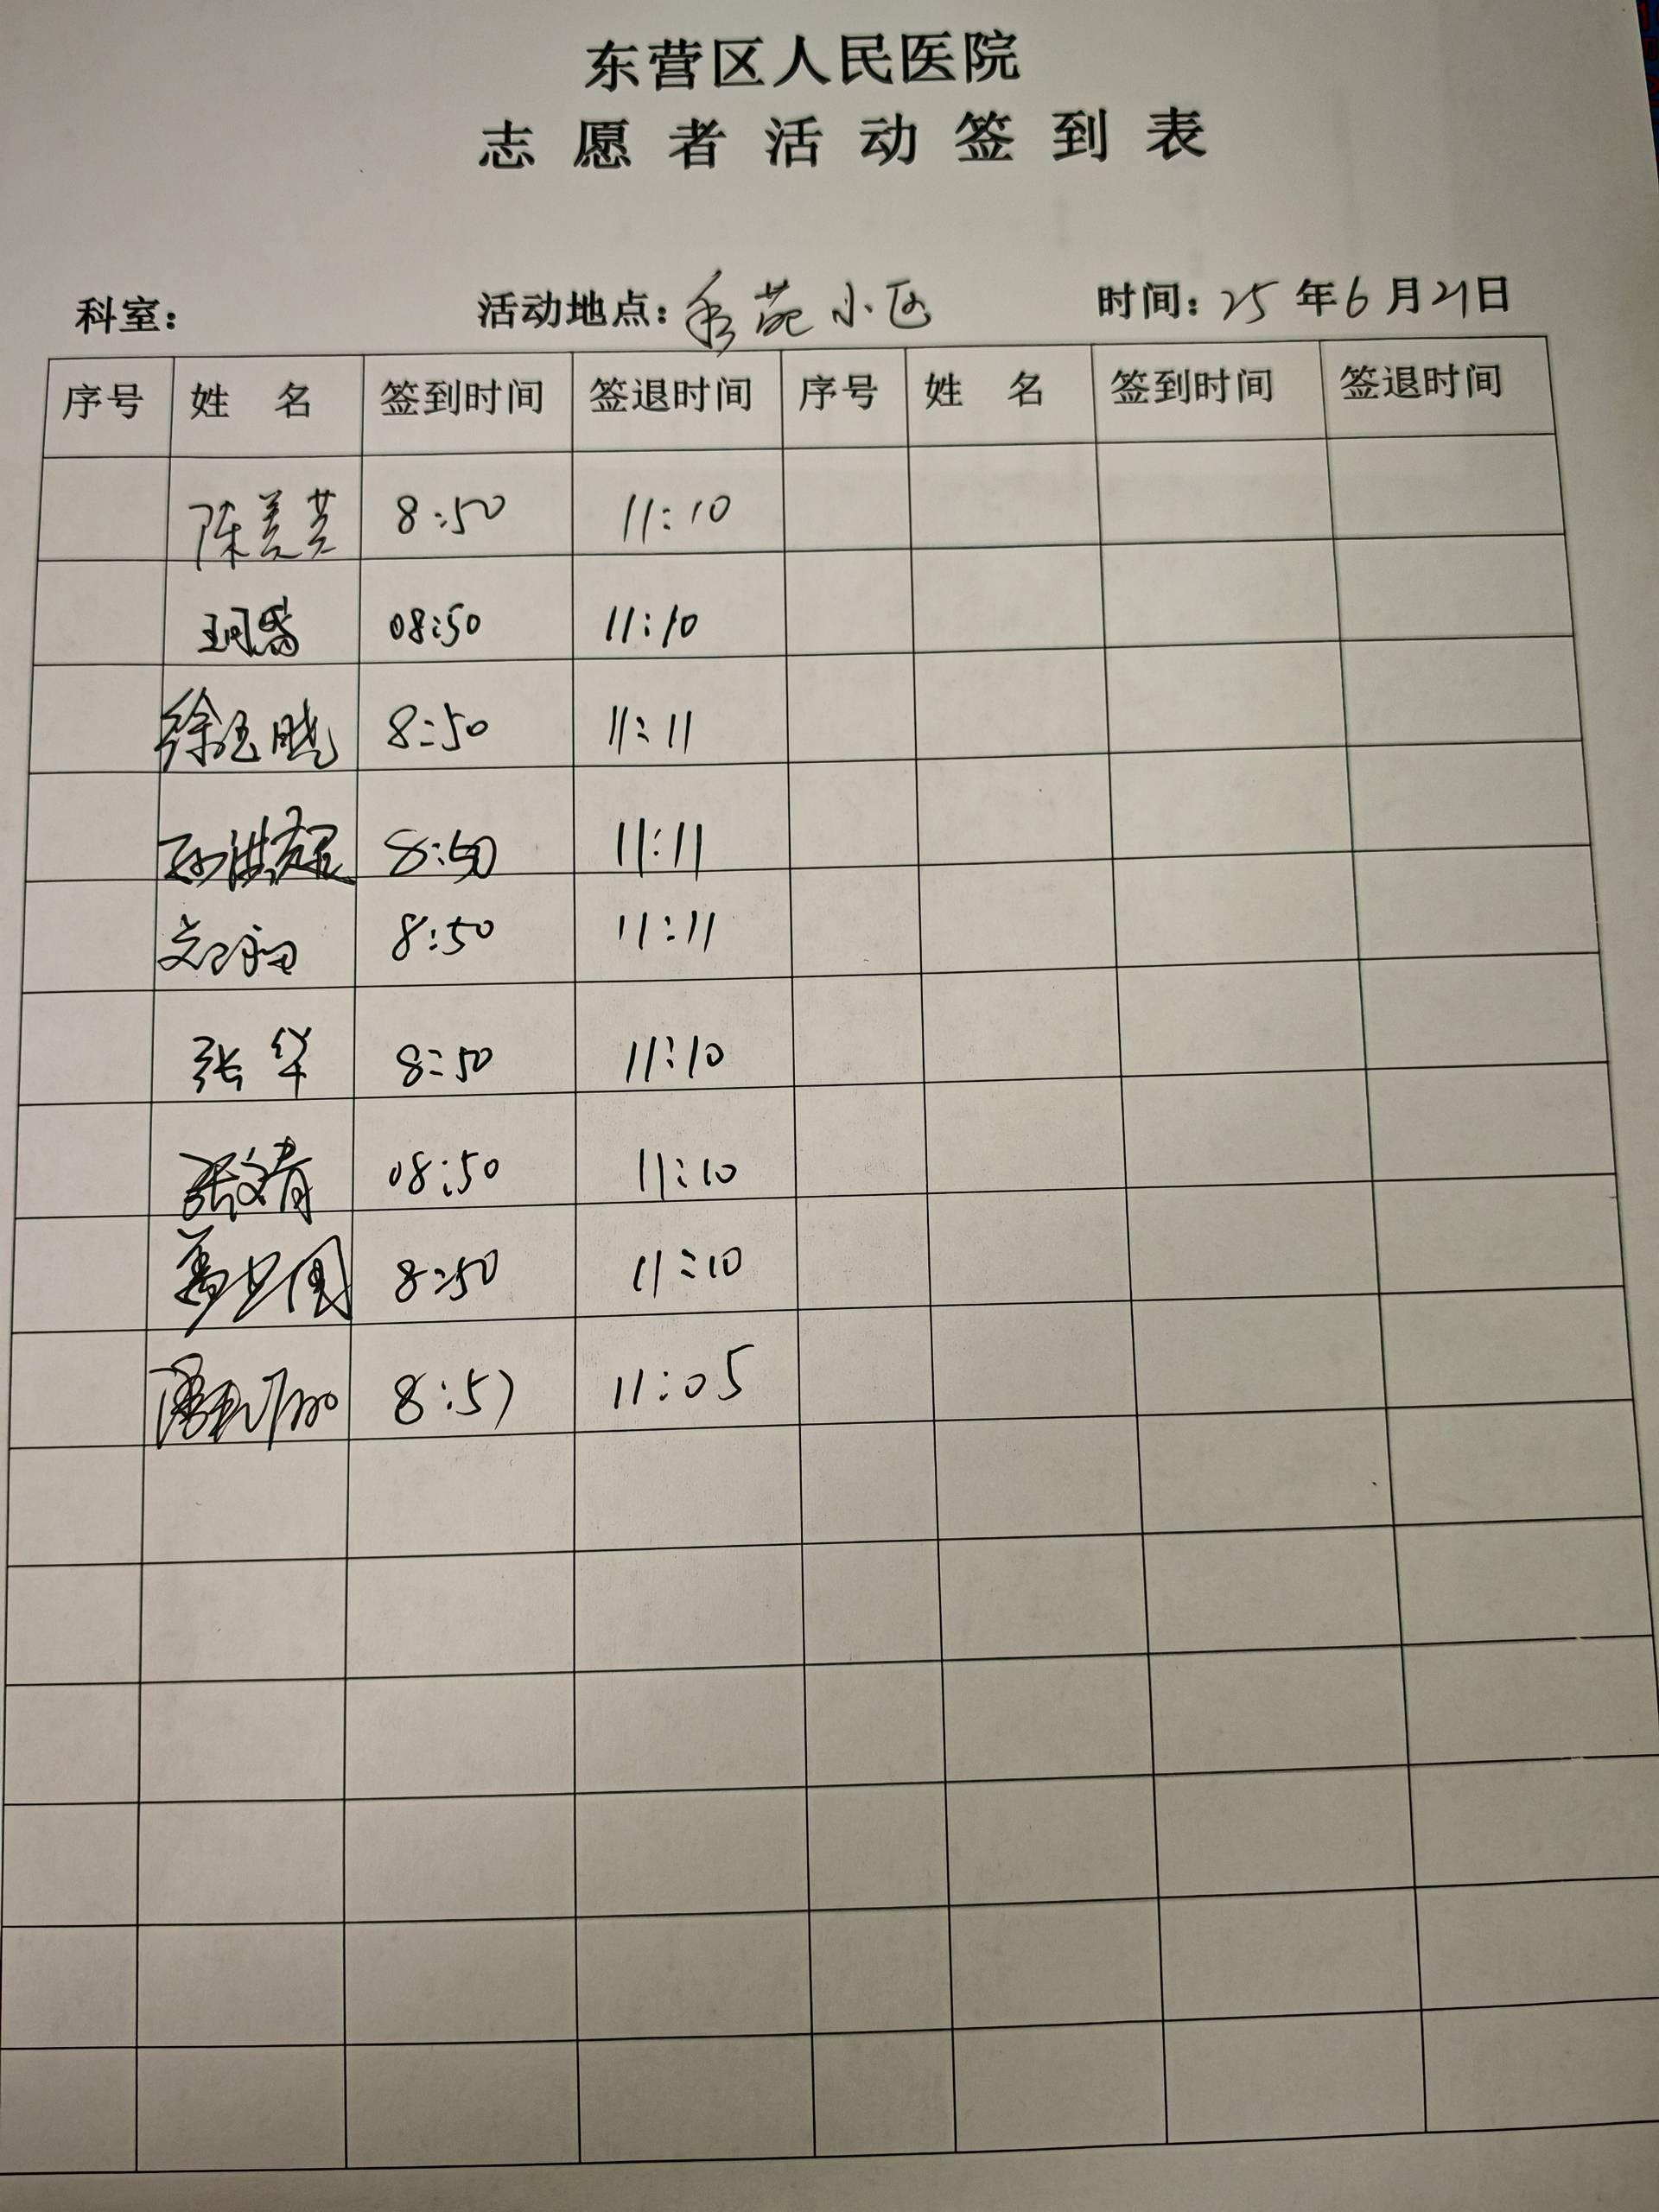 东营区人民医院
志愿者活动签到表
科室： 活动地点：秀苑小区 时间：25年6月21日
序号 姓名 签到时间 签退时间 序号 姓名 签到时间 签退时间
陈美芸 8:50 11:10
08:50 11:10
徐 晓 8:50 11:11
孙洪 8:50 11:11
8:50 11:11
张华 8:50 11:10
张文青 08:50 11:10
8:50 11:10
8:57 11:05